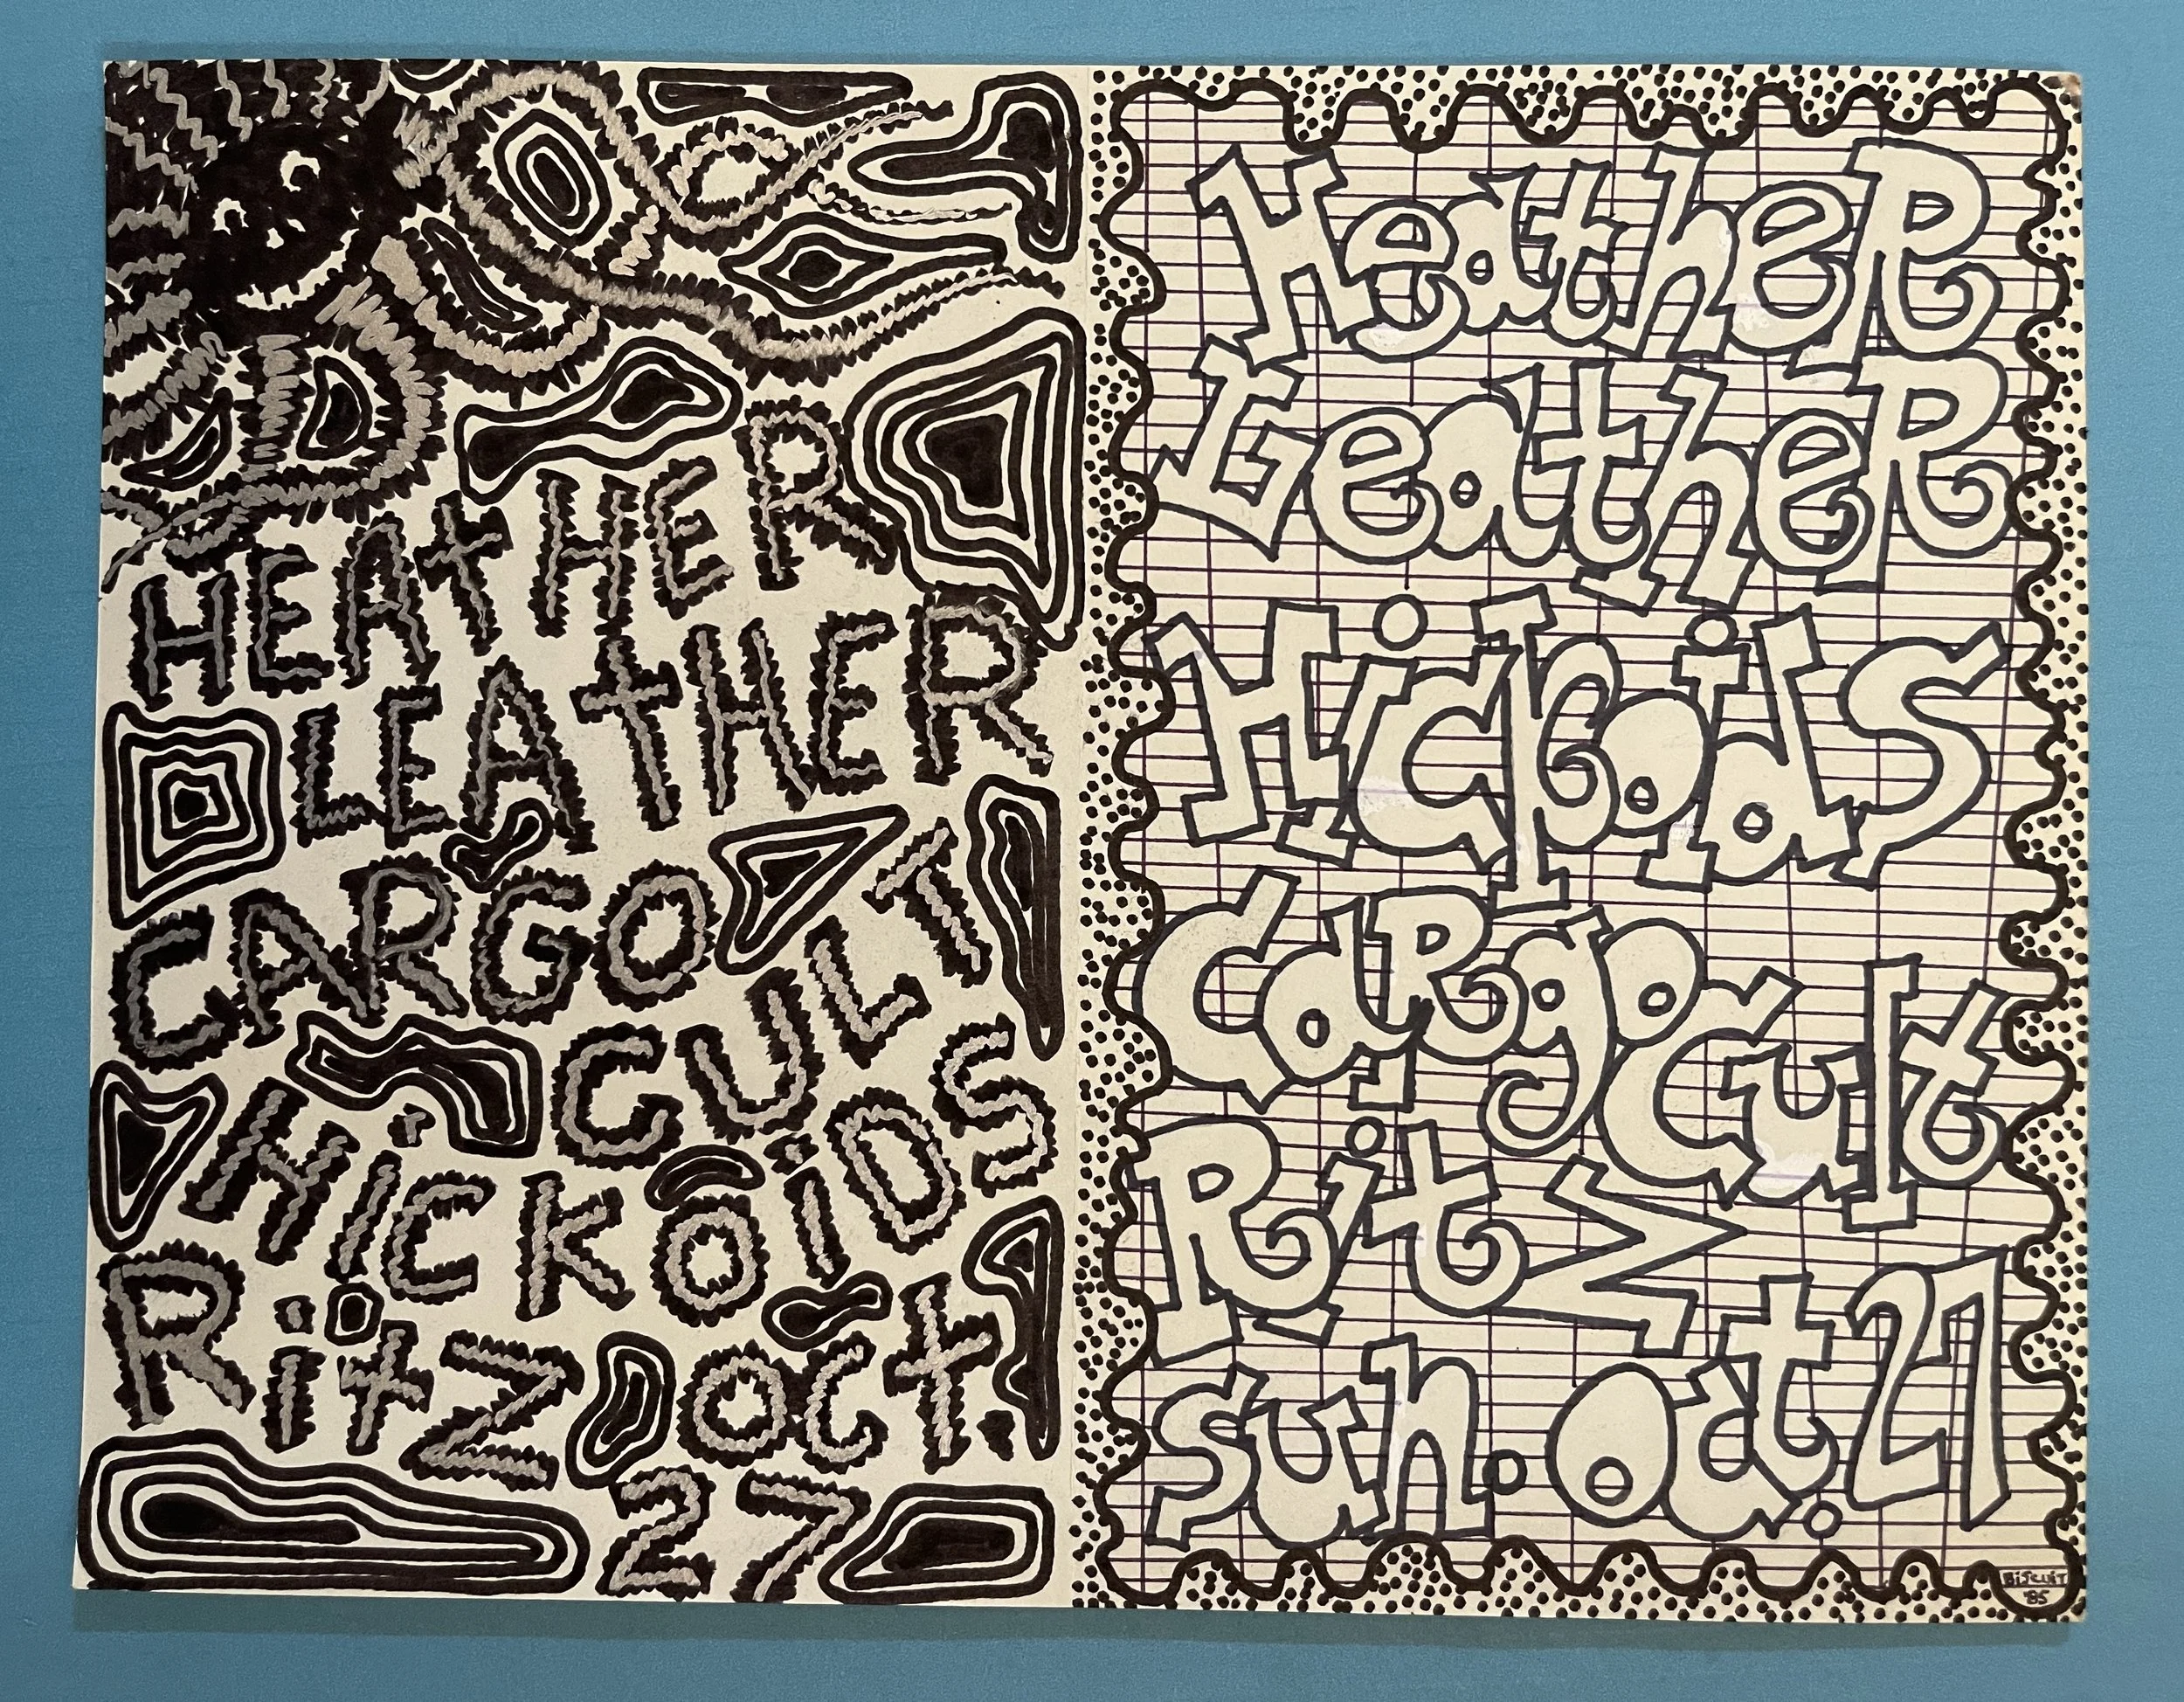 HEAtHER
LEAtHER
CARGO
CULT
HiCKOiDS
RitZ OCt.
27
HeatheR
LeatheR
HickoidS
CaRgo
Cult
RitZ
Sun. Oct. 27
BiSCUiT
'85